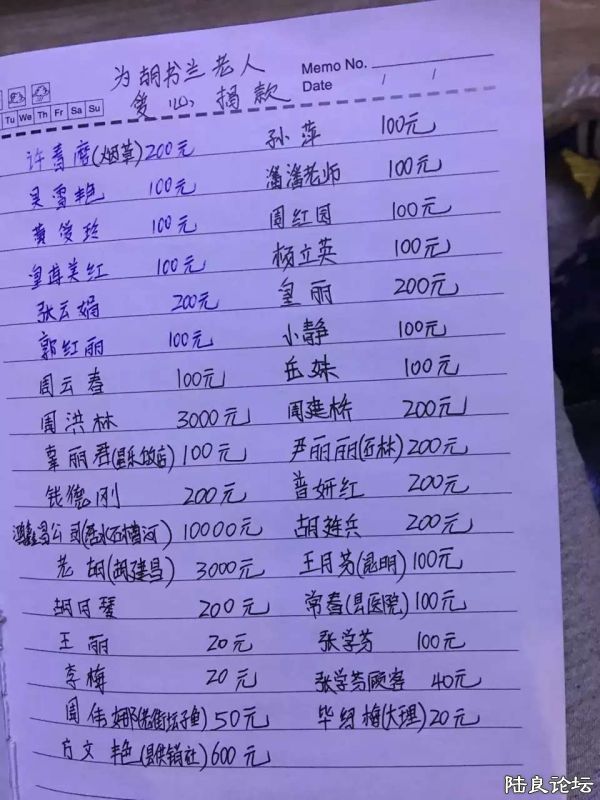 为胡书兰老人
爱心捐款
Memo No.
Date / /
Tu We Th Fr Sa Su
许春磨(烟草)200元 孙萍 100元
吴雪艳 100元 潘潘老师 100元
黄俊玲 100元 周红园 100元
皇甫美红 100元 杨立英 100元
张云娟 200元 皇丽 200元
郭红丽 100元 小静 100元
周云春 100元 岳姝 100元
周洪林 3000元 周建桥 200元
辜丽君(昆乐饭店)100元 尹丽丽(石林)200元
钱德刚 200元 普妍红 200元
公司(石槽河)10000元 胡 兵 200元
老胡(胡建昌)3000元 王月芬(昆明)100元
胡月琴 200元 常春(县医院)100元
王丽 20元 张学芬 100元
李梅 20元 张学芬顾客 40元
周伟娜(老街坛子鱼)50元 毕绍梅(大理)20元
方文艳(县供销社)600元
陆良论坛